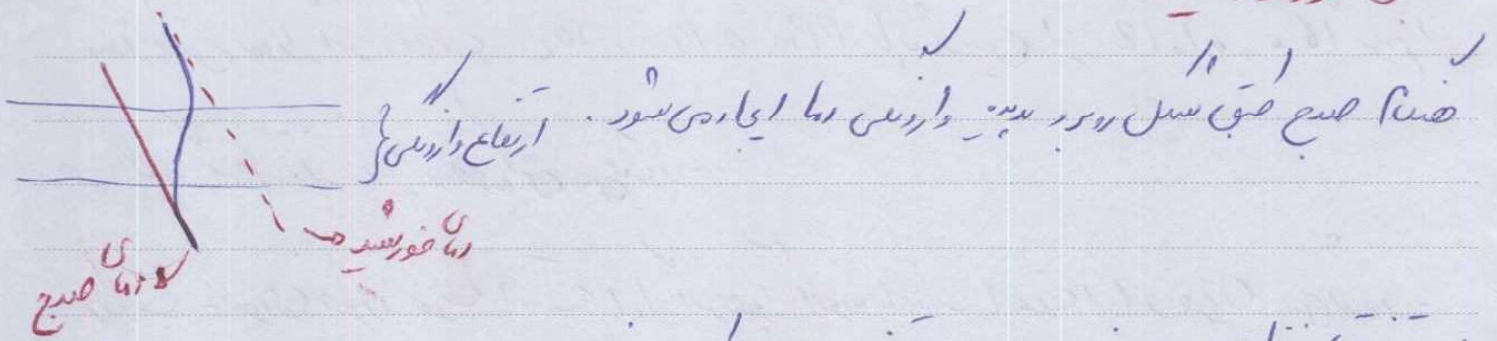 هنگام صبح طبق شکل روبرو پدیده وارونگی دما ایجاد می شود.
ارتفاع وارونگی
دمای خورشید
دمای صبح